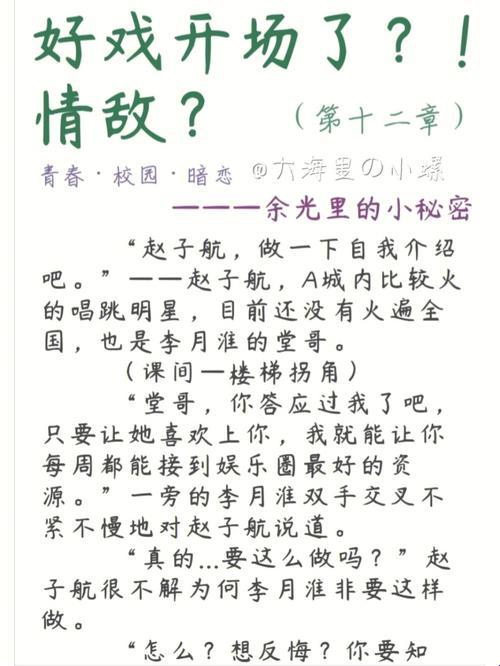 好戏开场了？！
情敌？ （第十二章）
青春·校园·暗恋 @大海里の小螺
一一一余光里的小秘密
“赵子航，做一下自我介绍
吧。”一一赵子航，A城内比较火
的唱跳明星，目前还没有火遍全
国，也是李月淮的堂哥。
（课间一楼梯拐角）
“堂哥，你答应过我了吧，
只要让她喜欢上你，我就能让你
每周都能接到娱乐圈最好的资
源。”一旁的李月淮双手交叉不
紧不慢地对赵子航说道。
“真的...要这么做吗？”赵
子航很不解为何李月淮非要这样
做。
“怎么？想反悔？你要知